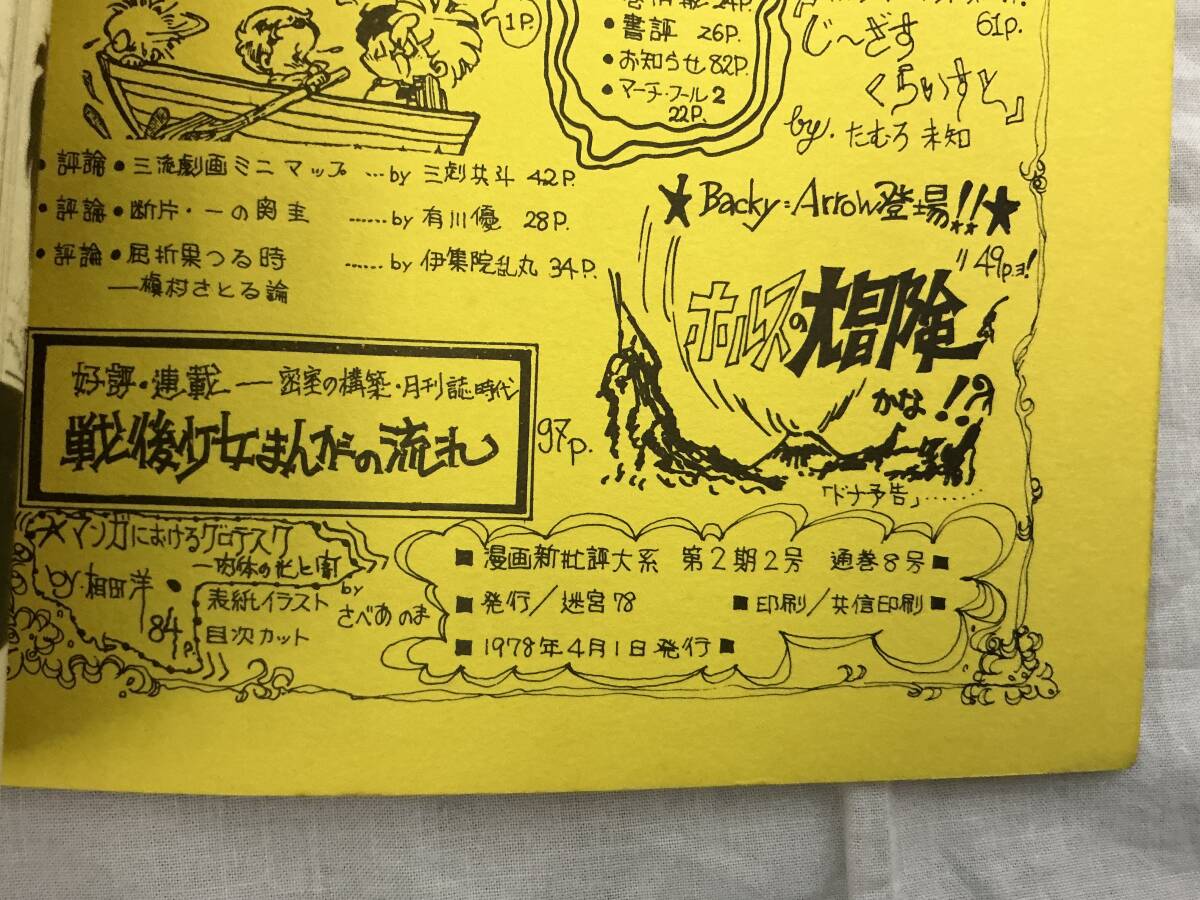 1P.
・書評 26P.
・お知らせ 82P.
・マーチ・フール2
22P.
61P.
じ〜ざす
くらいすと』
by. たむろ未知
・評論・三流劇画ミニマップ …by 三劇共斗 42P.
・評論・断片・一の関圭 ……by 有川優 28P.
・評論・屈折果つる時 ……by 伊集院乱丸 34P.
―槇村さとる論
★Backy=Arrow登場!!★
49P.ヨ!
ホルスの大冒険
かな!?
「ドナ予告」………
好評・連載―密室の構築・月刊誌時代
戦後少女まんがの流れ
97P.
★マンガにおけるグロテスク
―肉体の光と闇
by.相田洋・
84P.
表紙イラスト
目次カット
by
さべあのま
■漫画新批評大系 第2期2号 通巻8号■
■発行/迷宮78 ■印刷/共信印刷■
■1978年4月1日発行■